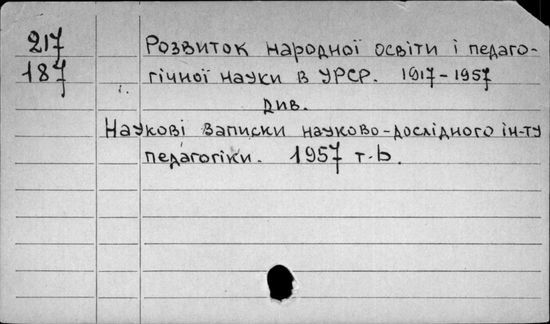 217
187
Розвиток народної освіти і педаго-
гічної науки в УРСР. 1917-1957
див.
Наукові записки науково-дослідного ін-ту
педагогіки. 1957 т.